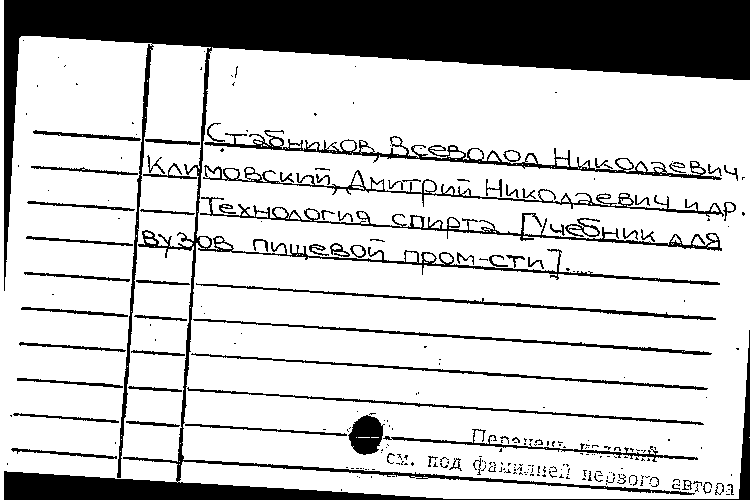 Стабников, Всеволод Николаевич.
Климовский, Дмитрий Николаевич и др.
Технология спирта [Учебник для
вузов пищевой пром-сти].
Перечень изданий
см. под фамилией первого автора